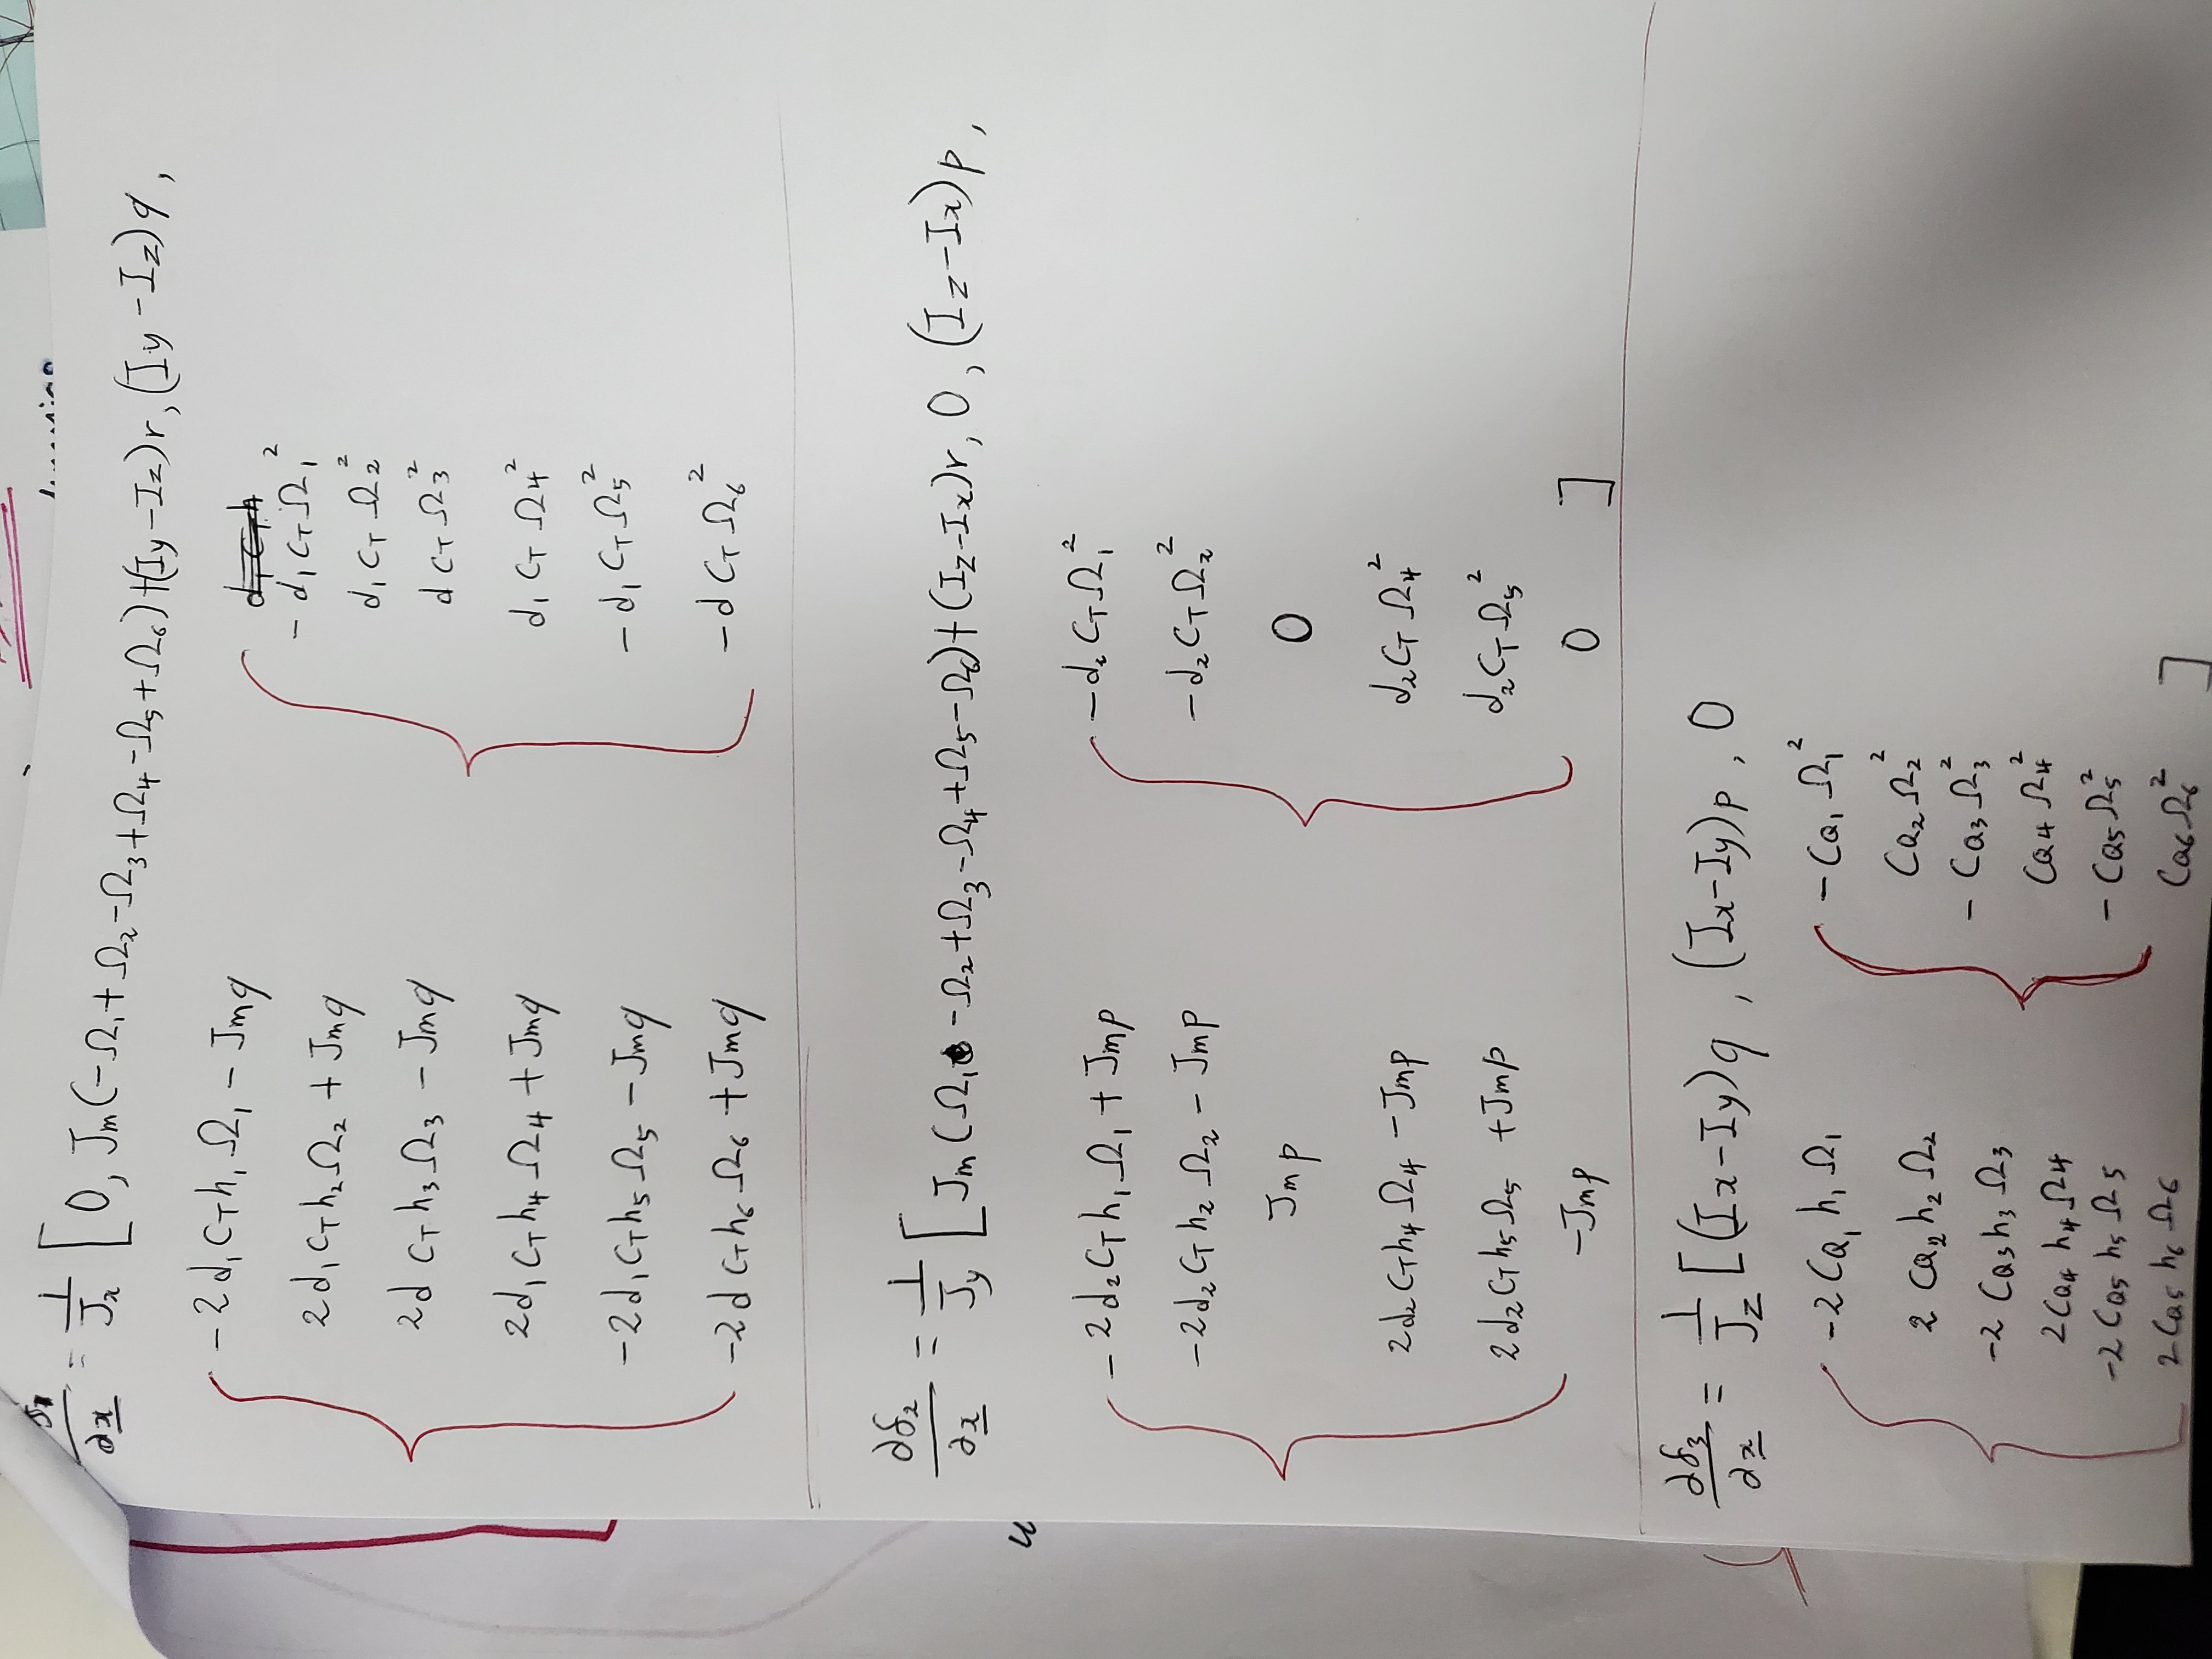 ∂x = 1/Jx [0, Jm(-Ω1+Ω2-Ω3+Ω4-Ω5+Ω6)+(Iy-Iz)r, (Iy-Iz)q,
-2d1CTh1Ω1 - Jmq    -d1CTΩ1²
2d1CTh2Ω2 + Jmq    d1CTΩ2²
2dCTh3Ω3 - Jmq    dCTΩ3²
2d1CTh4Ω4 + Jmq    d1CTΩ4²
-2d1CTh5Ω5 - Jmq    -d1CTΩ5²
-2dCTh6Ω6 + Jmq    -dCTΩ6²
∂δ2/∂x = 1/Jy [Jm(Ω1-Ω2+Ω3-Ω4+Ω5-Ω6)+(Iz-Ix)r, 0, (Iz-Ix)p,
-2d2CTh1Ω1 + Jmp    -d2CTΩ1²
-2d2CTh2Ω2 - Jmp    -d2CTΩ2²
Jmp    0
2d2CTh4Ω4 - Jmp    d2CTΩ4²
2d2CTh5Ω5 + Jmp    d2CTΩ5²
-Jmp    0 ]
∂δ3/∂x = 1/Jz [(Ix-Iy)q, (Ix-Iy)p, 0
-2CQ1h1Ω1    -CQ1Ω1²
2CQ2h2Ω2    CQ2Ω2²
-2CQ3h3Ω3    -CQ3Ω3²
2CQ4h4Ω4    CQ4Ω4²
-2CQ5h5Ω5    -CQ5Ω5²
2CQ5h6Ω6    CQ6Ω6² ]